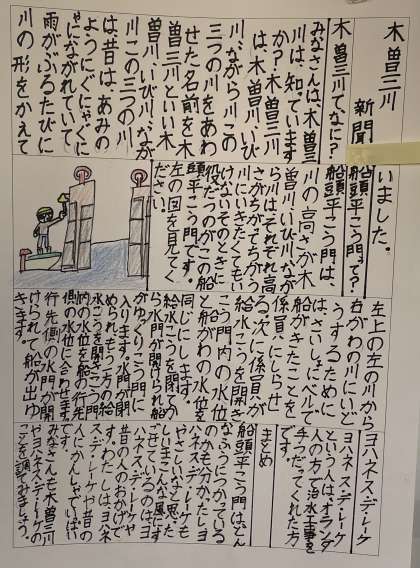 木曽三川
新聞
木曽三川てなに?
みなさんは、木曽三
川は、知でいます
か?木曽三川
は、木曽川、いび
川、ながら川この
三つの川をあわ
せた名前を木
曽三川といい木
曽川、いび川、なが
川この三つの川
は、昔は、あみの
ようにぐにゃぐに
ゃにながれていて、
雨がふるたびに
川の形をかえて
いました。
船頭平こう門って?
船頭平こう門は、
川の高さが木
曽川、いび川、なが
ら川はそれぞれ高
さがちがてちがう
川にいきたくてもい
けないそのときに
役だつのがこの船
頭平こう門です。
左の図を見てく
ださい。
左上の左の川から
右がわの川にいど
うするために
は、さいしょにベルで
船がきたことを
係員にしらせ
る。次に係員が
給水こうを開き
こう門内の水位
と船がわの水位を
同じにします。
給水こうを開けか
ら水門が開けられ船
がゆっくりこう門に
入ります。水門が閉
められもう一方の給
水こうを開きこう門
内の水位を船の行先
側の水位に合わせます。
行先側の水門が開
けられて船が出ゆ
きます。
ヨハネス・デ・レーケ
ヨハネス・デ・レーケ
という人は、オランダ
人の方で治水工事を
手つだってくれた方
です。
まとめ
船頭平こう門は、どん
なふうにつかっている
のかも分かったしヨ
ハネス・デ・レーケも
やさしいなと思った
し、いまこんな風にす
ごせているのはヨ
ハネス・デ・レーケや
昔の人のおかげで
す。わたしは、ヨハネ
ス・デ・レーケや昔の
人にかんしゃでいっぱい
です
みなさんも木曽三川
やヨハネス・デ・レーケの
ことを調てみましょう。